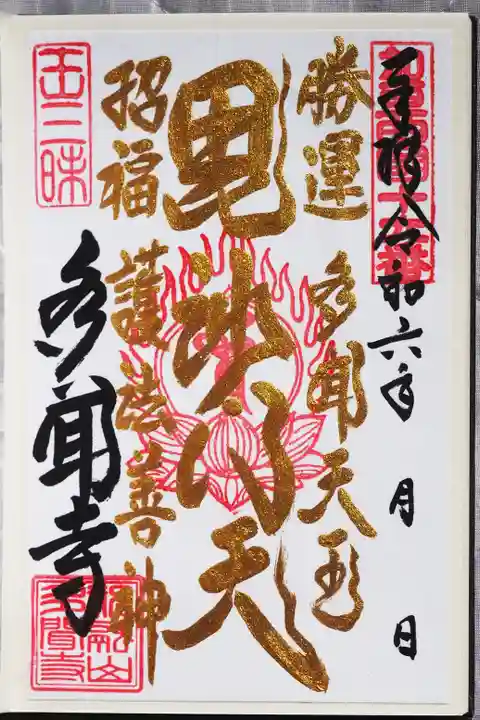 奉拝 令和六年 月 日
勝運 多聞天王
毘沙門天
招福 護法善神
多聞寺
玉三昧
多聞寺